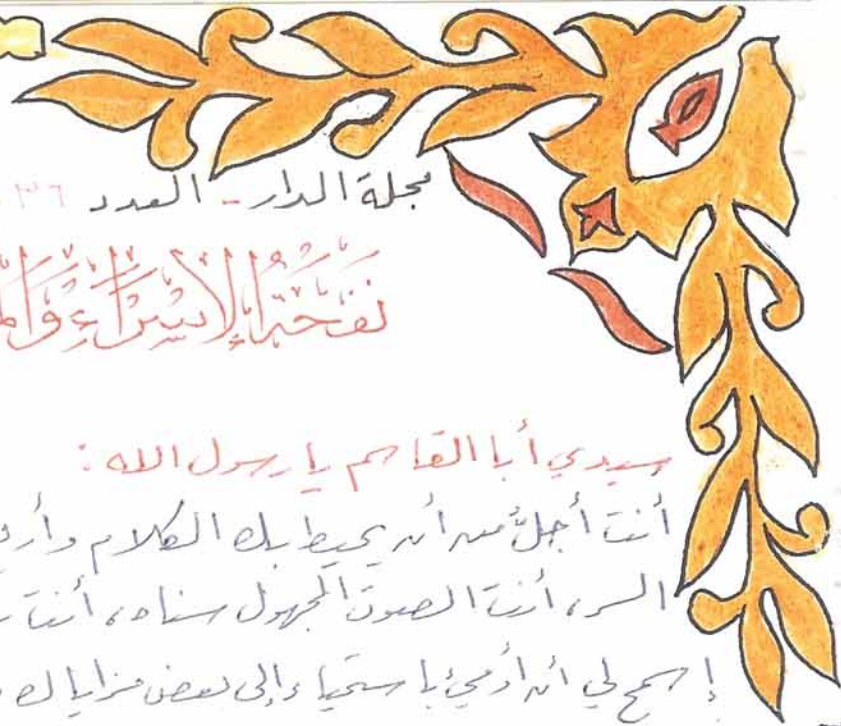 مجلة الدار - العدد ٣٦
نفحة الإسراء و
سيدي أبا القاسم يا رسول الله :
أنت أجلّ من أن يحيط بك الكلام
السر، أنت الصوت المجهول سناه، أنت
إسمح لي أن أومئ باستحياء إلى بعض مزاياك